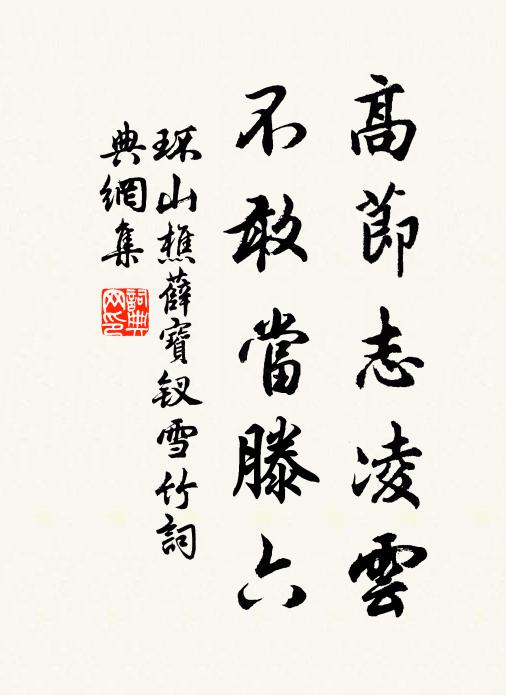 高節志凌雲
不敢當滕六
環山樵薛寶釵雪竹詞
典網集
詞典
网印